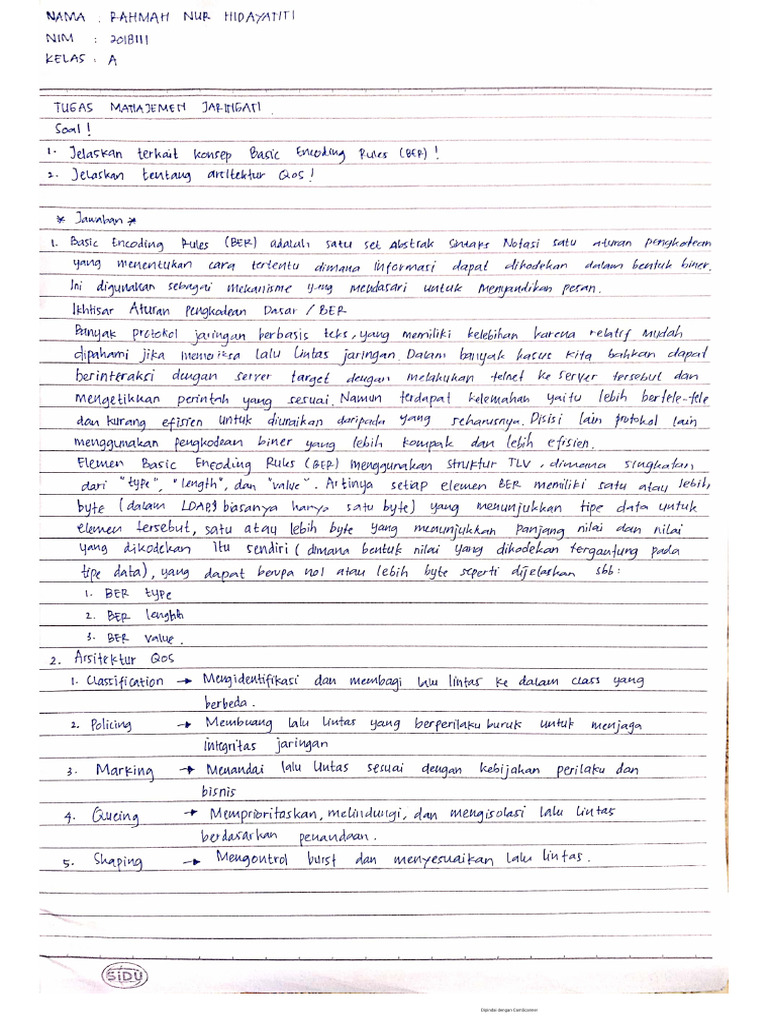 NAMA : RAHMAH NUR HIDAYATITI
NIM : 2018111
KELAS : A
TUGAS MANAJEMEN JARINGAN
Soal !
1. Jelaskan terkait konsep Basic Encoding Rules (BER) !
2. Jelaskan tentang arsitektur QoS !
* Jawaban *
1. Basic Encoding Rules (BER) adalah satu set Abstrak Sintaks Notasi satu aturan pengkodean
yang menentukan cara tertentu dimana informasi dapat dikodekan dalam bentuk biner.
Ini digunakan sebagai mekanisme yang mendasari untuk menyandikan pesan.
Ikhtisar Aturan Pengkodean Dasar / BER
Banyak protokol jaringan berbasis teks, yang memiliki kelebihan karena relatif mudah
dipahami jika memeriksa lalu lintas jaringan. Dalam banyak kasus kita bahkan dapat
berinteraksi dengan server target dengan melakukan telnet ke server tersebut dan
mengetikkan perintah yang sesuai. Namun terdapat kelemahan yaitu lebih bertele-tele
dan kurang efisien untuk diuraikan daripada yang seharusnya. Disisi lain protokol lain
menggunakan pengkodean biner yang lebih kompak dan lebih efisien.
Elemen Basic Encoding Rules (BER) menggunakan struktur TLV, dimana singkatan
dari "type", "length", dan "value". Artinya setiap elemen BER memiliki satu atau lebih
byte (dalam LDAP, biasanya hanya satu byte) yang menunjukkan tipe data untuk
elemen tersebut, satu atau lebih byte yang menunjukkan panjang nilai dan nilai
yang dikodekan itu sendiri (dimana bentuk nilai yang dikodekan tergantung pada
tipe data), yang dapat berupa nol atau lebih byte seperti dijelaskan sbb:
1. BER type
2. BER lenghth
3. BER value.
2. Arsitektur QoS
1. Classification → Mengidentifikasi dan membagi lalu lintas ke dalam class yang
berbeda.
2. Policing → Membuang lalu lintas yang berperilaku buruk untuk menjaga
integritas jaringan
3. Marking → Menandai lalu lintas sesuai dengan kebijakan perilaku dan
bisnis
4. Queing → Memprioritaskan, melindungi, dan mengisolasi lalu lintas
berdasarkan penandaan.
5. Shaping → Mengontrol burst dan menyesuaikan lalu lintas.
SiDU
Dipindai dengan CamScanner